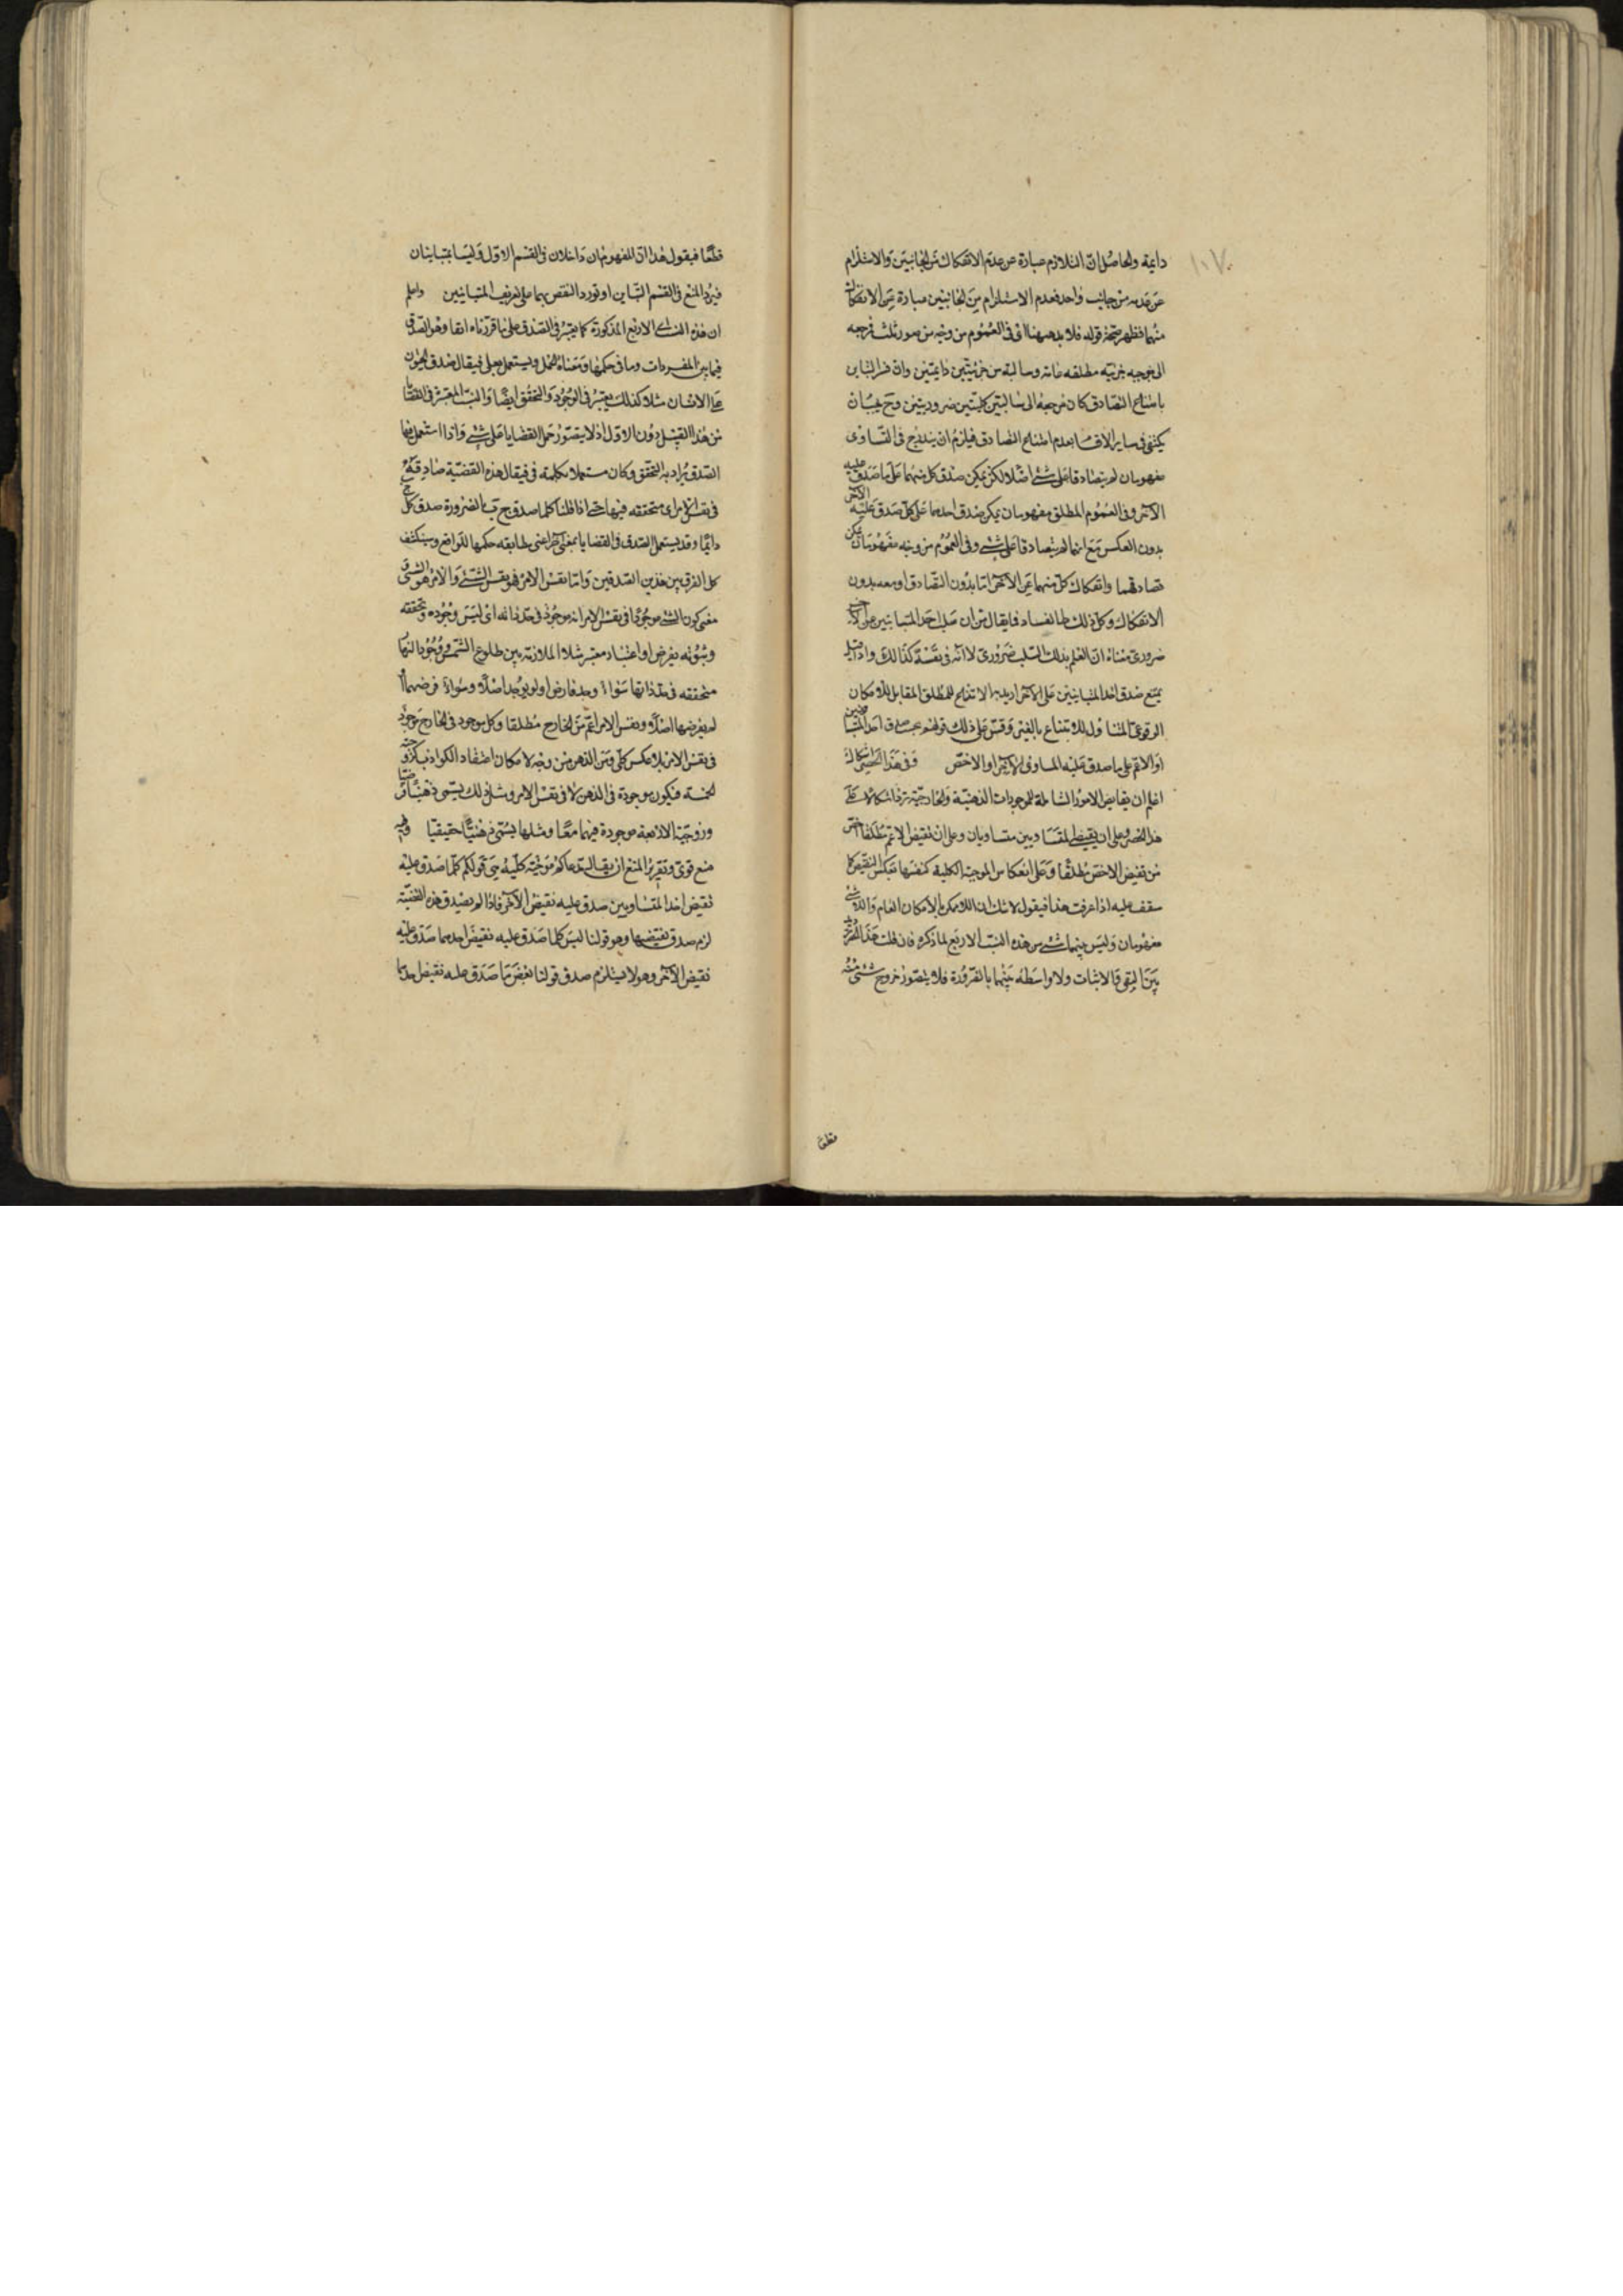 ١٠٧
دايمة والحاصل ان التلازم عبارة عن عدم الانفكاك من الجانبين والاستلزام
عن عدمه من جانب واحد فعدم الاستلزام من الجانبين عبارة عن الانفكاك
منهما فظهر صحة قوله فلا بد ههنا اى فى العموم من وجه من صور ثلث فمرجعه
الى موجبه جزئيه مطلقه عامه وسالبة من جزئيتين دايمتين وان فسر التباين
بامتناع التصادق كان مرجعه الى سالبتين كليتين ضروريتين وح يجب ان
يكتفى فى ساير الاقسام بعدم امتناع التصادق فيلزم ان يندرج فى التساوى
مفهومان لم يتصادقا على شئ اصلا لكن يمكن صدق كل منهما على ما صدق عليه
الآخر وفى العموم المطلق مفهومان يمكن صدق احدهما على كل صدق عليه الآخر
بدون العكس مع انهما لم يتصادقا على شئ وفى العموم من وجه مفهومان يمكن
تصادقهما وانفكاك كل منهما عن الآخر اما بدون التصادق او معه بدون
الانفكاك وكل ذلك ظ الفساد فما يقال من ان سلب احد المتباينين عن الآخر
ضرورى معناه ان العلم بذلك السلب ضرورى لا انه فى نفسه كذلك واذا قيل
يمتنع صدق احد المتباينين على الآخر اريد به الامتناع المطلق المقابل للامكان
الوقوعى المتناول للامتناع بالغير وقس على ذلك قولهم يجب صدق احد المتساويين
او الاعم على ما صدق عليه المساوى الآخر او الاخص وفى هذا الحصر اشكال
اعلم ان نقايض الامور الشاملة للموجودات الذهنية والخارجية ترد اشكالا على
هذا الحصر وعلى ان نقيضى المتساويين متساويان وعلى ان نقيض الاعم مطلقا اخص
من نقيض الاخص مطلقا وعلى انعكاس الموجبة الكلية كنفسها بعكس النقيض كما
ستقف عليه اذا عرفت هذا فيقول لا شك ان اللاممكن بالامكان العام واللاشئ
مفهومان وليس بينهما شئ من هذه النسب الاربع لما ذكره فان قلت هذا الحصر
بين النفى والاثبات ولا واسطة بينهما بالضرورة فلا يتصور خروج شئ منه
قطعا
قطعا فيقول هذان المفهومان داخلان فى القسم الاول وليسا بمتباينان
فيرد المنع فى القسم التباين او تورد النقض بهما على تعريف المتباينين واعلم
ان هذه النسب الاربع المذكورة كما يعتبر فى الصدق على ما قررناه انفا وهو الصدق
فيما بين المفردات وما فى حكمها ومعناه الحمل ويستعمل بعلى فيقال صدق الحيوان
على الانسان مثلا كذلك يعتبر فى الوجود والتحقق ايضا والنسب المعتبرة فى القضايا
من هذا القبيل دون الاول اذ لا يتصور حمل القضايا على شئ واذا استعمل فيها
الصدق يراد به التحقق وكان مستعملا بكلمة فى فيقال هذه القضية صادقة
فى نفس الامر اى متحققه فيها حتى اذا قلنا كلما صدق ج ب بالضرورة صدق كل ج
دايما وقد يستعمل الصدق فى القضايا بمعنى آخر اعنى مطابقه حكمها للواقع وسينكشف
كل الفرق بين هذين الصدقين واما نفس الامر فهو نفس الشئ والامر هو الشئ
معنى كون الشئ موجودا فى نفس الامر انه موجود فى حد ذاته اى ليس وجوده وتحققه
وثبوته بفرض او اعتبار معتبر مثلا الملازمة بين طلوع الشمس ووجود النهار
متحققه فى حد ذاتها سواء وجد فارض او لم يوجد اصلا وسواء فرضهما او
لم يفرضها اصلا ونفس الامر اعم من الخارج مطلقا وكل موجود فى الخارج موجود
فى نفس الامر بلا عكس كلى ومن الذهن من وجه لامكان اعتقاد الكواذب كزوجية
الخمسة فيكون موجودة فى الذهن لا فى نفس الامر ومثل ذلك يسمى ذهنيا فرضيا
وزوجية الاربعة موجودة فيهما معا ومثلها يسمى ذهنيا حقيقيا وفيه
منع قوى وتقرير المنع ان يقال المدعى كم موجبة كلية هى قولكم كلما صدق عليه
نقيض احد المتساويين صدق عليه نقيض الآخر فاذا لم يصدق هذه القضية
لزم صدق نقيضها وهو قولنا ليس كلما صدق عليه نقيض احدهما صدق عليه
نقيض الآخر وهو لا يستلزم صدق قولنا بعض ما صدق عليه نقيض احدهما